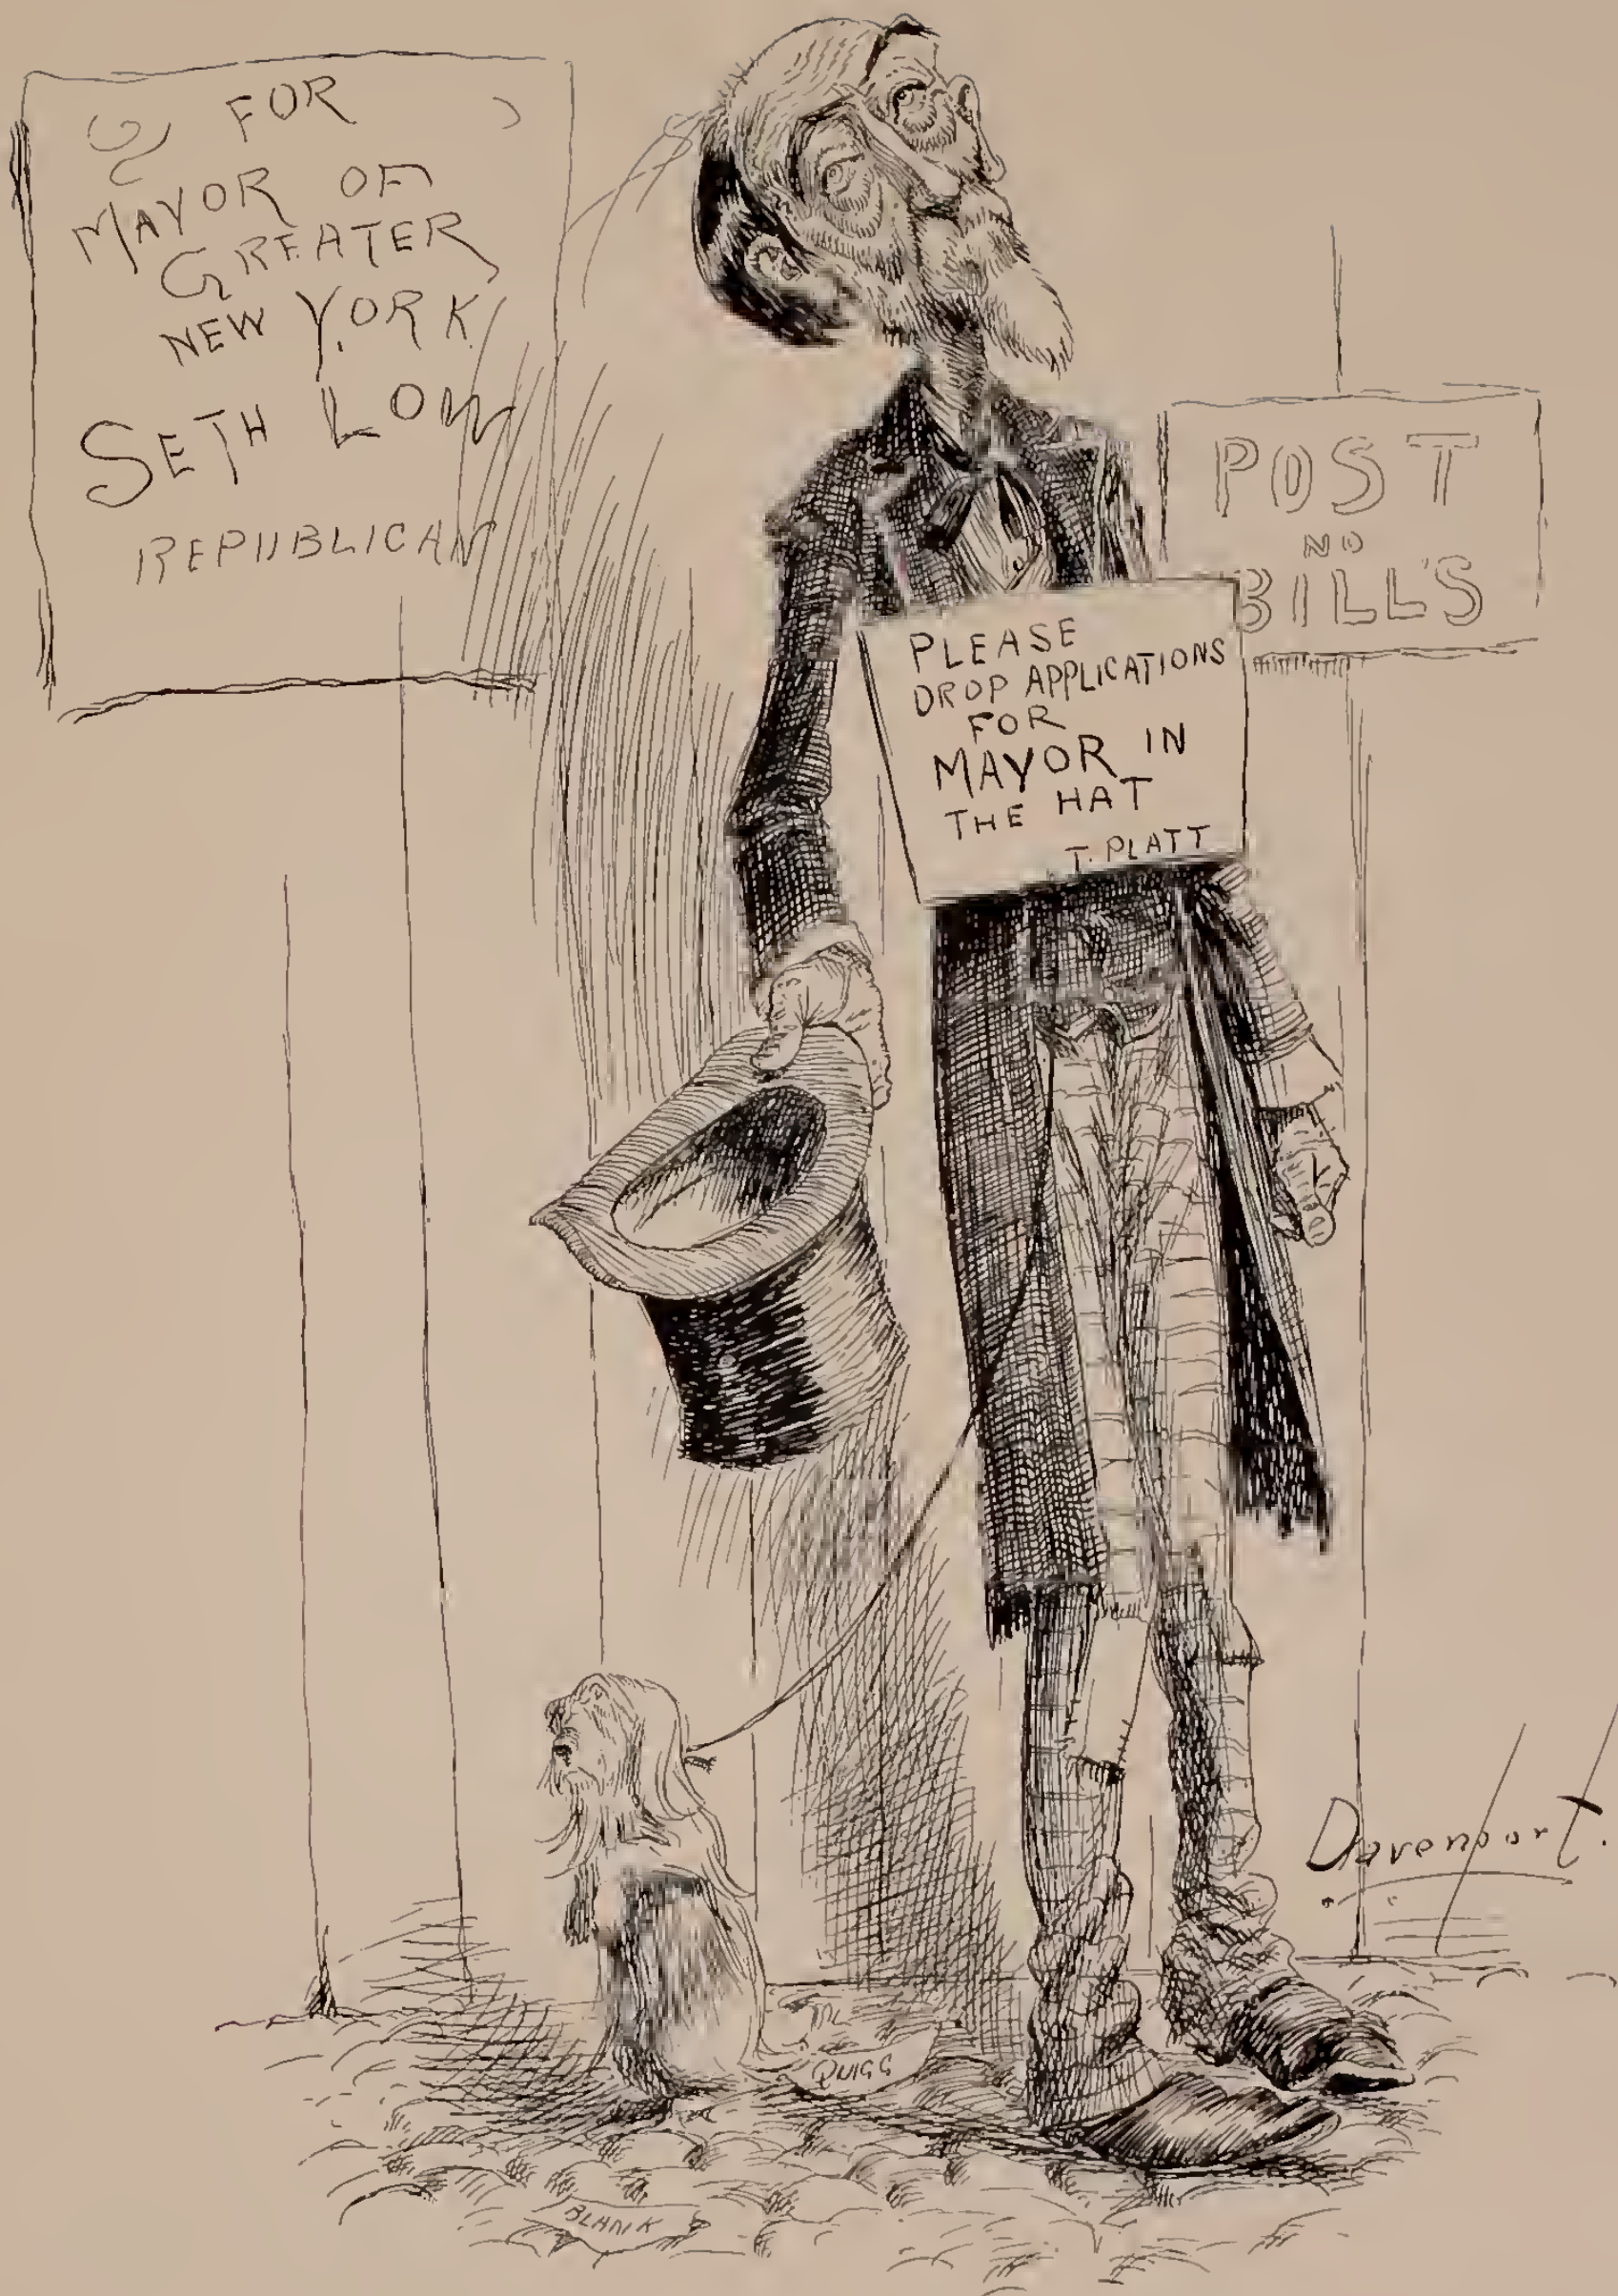 FOR
MAYOR OF
GREATER
NEW YORK
SETH LOW
REPUBLICAN
POST
NO
BILL'S
PLEASE
DROP APPLICATIONS
FOR
MAYOR IN
THE HAT
T. PLATT
Davenport.
QUIGG
BLANK